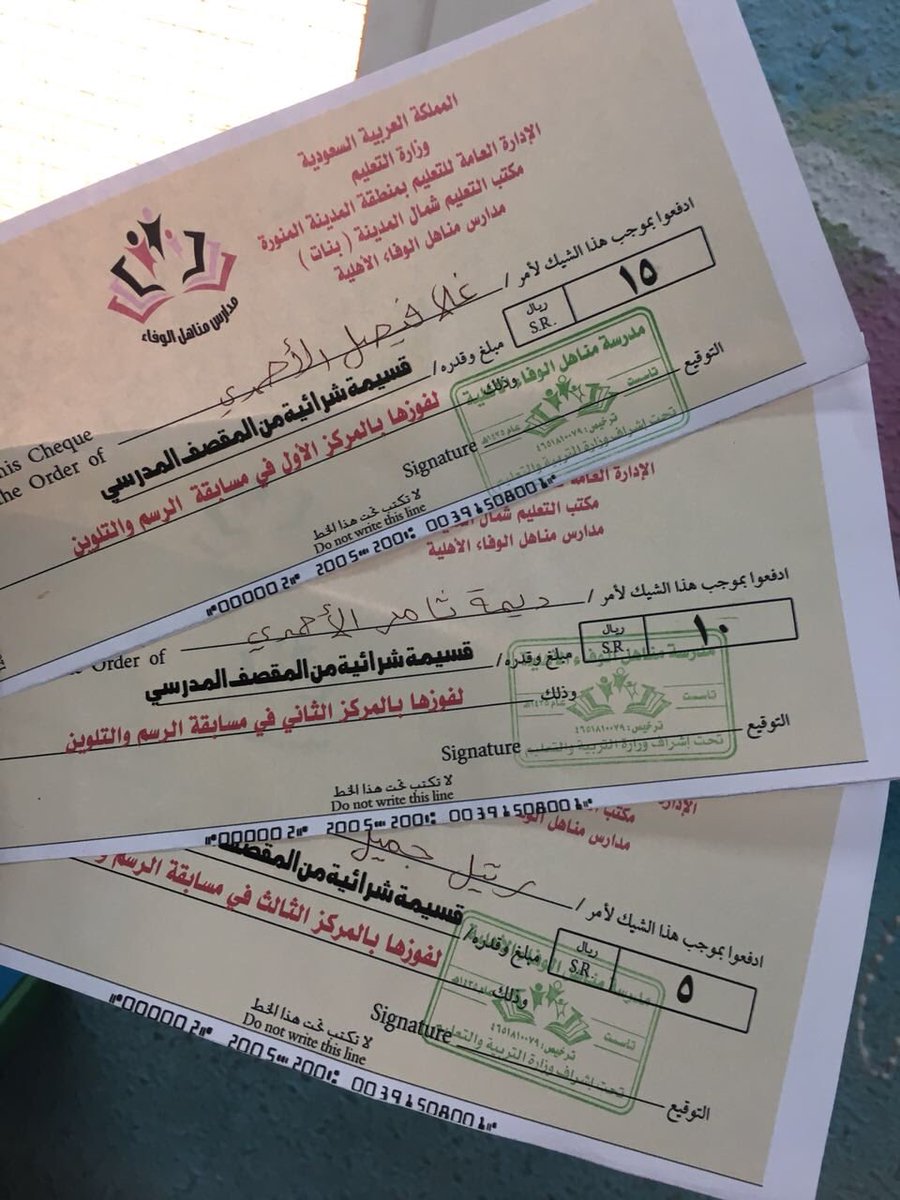 المملكة العربية السعودية
وزارة التعليم
الإدارة العامة للتعليم بمنطقة المدينة المنورة
مكتب التعليم شمال المدينة ( بنات )
مدارس مناهل الوفاء الأهلية
مدارس مناهل الوفاء
ادفعوا بموجب هذا الشيك لأمر / غلا فيصل الأحمدي
ريال
S.R.
١٥
مبلغ وقدره / قسيمة شرائية من المقصف المدرسي
his Cheque
the Order of
وذلك لفوزها بالمركز الأول في مسابقة الرسم والتلوين
التوقيع
Signature
مدرسة مناهل الوفاء الأهلية
تاسست
عام ١٤٢٥هـ
ترخيص: ٤٦٥١٨١٠٠٧٩
تحت إشراف وزارة التربية والتعليم
لا تكتب تحت هذا الخط
Do not write this line
⑈00000 2⑈ 2005⑉200⑆ 0039150800⑈
الإدارة العامة
مكتب التعليم شمال
مدارس مناهل الوفاء الأهلية
ادفعوا بموجب هذا الشيك لأمر / ديمة ثامر الأحمدي
ريال
S.R.
١٠
مبلغ وقدره / قسيمة شرائية من المقصف المدرسي
Order of
وذلك لفوزها بالمركز الثاني في مسابقة الرسم والتلوين
التوقيع
Signature
مدرسة مناهل الوفاء الأهلية
تاسست
عام ١٤٢٥هـ
ترخيص: ٤٦٥١٨١٠٠٧٩
تحت إشراف وزارة التربية والتعليم
لا تكتب تحت هذا الخط
Do not write this line
⑈00000 2⑈ 2005⑉200⑆ 0039150800⑈
مدارس مناهل
ادفعوا بموجب هذا الشيك لأمر / رتيل جميل
ريال
S.R.
٥
مبلغ وقدره / قسيمة شرائية من المقصف
وذلك لفوزها بالمركز الثالث في مسابقة الرسم
التوقيع
Signature
مدرسة مناهل الوفاء الأهلية
تاسست
عام ١٤٢٥هـ
ترخيص: ٤٦٥١٨١٠٠٧٩
تحت إشراف وزارة التربية والتعليم
لا تكتب تحت هذا الخط
Do not write this line
⑈00000 2⑈ 2005⑉200⑆ 0039150800⑈